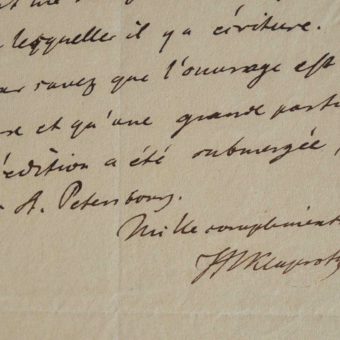 lesquelles il y a écriture.
savez que l'ouvrage est
et qu'une grande partie
l'édition a été submergée,
St. Petersbourg.
Mille compliments
Klaproth